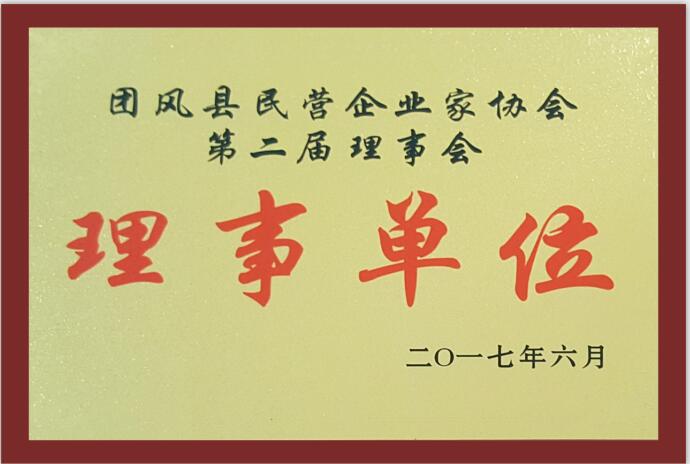 团风县民营企业家协会
第二届理事会
理事单位
二〇一七年六月